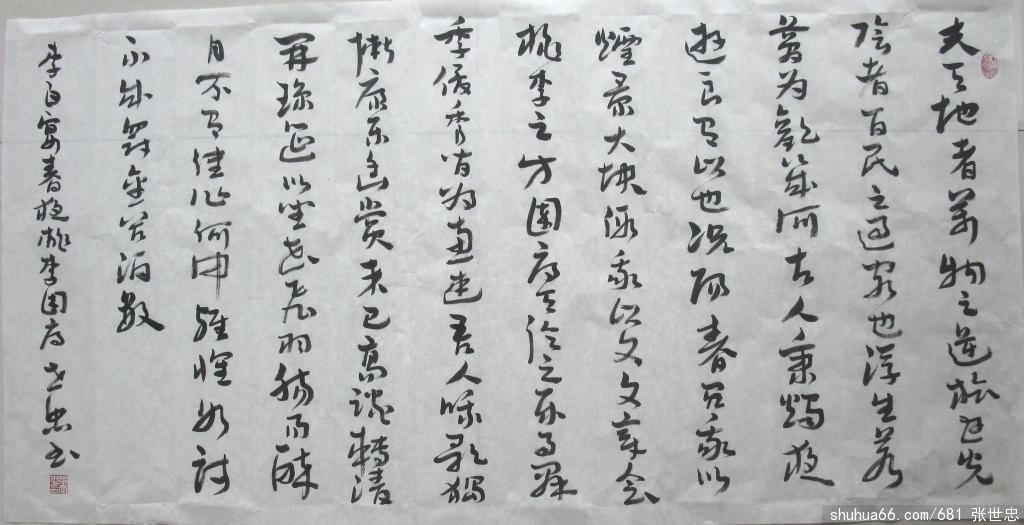 夫天地者萬物之逆旅也光
陰者百代之過客也浮生若
夢为歡幾何古人秉燭夜
遊良有以也況陽春召我以
煙景大块假我以文文章会
桃李之方園序天倫之樂事群
季俊秀皆为惠連吾人咏歌獨
慚康樂幽賞未已高談轉清
開瓊筵以坐花飛羽觴而醉
月不有佳作何伸雅懷如詩
不成罰金谷酒數
李白宴春夜桃李園序 世忠书
shuhua66.com/681 张世忠